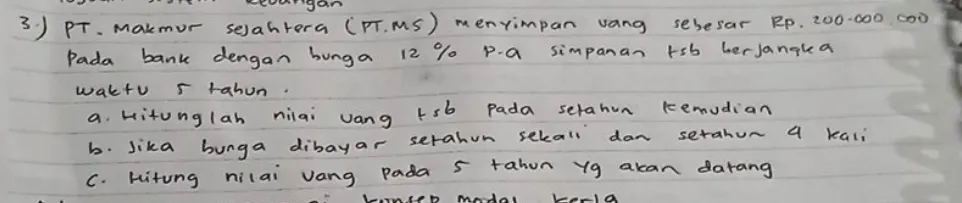 keuangan
3.) PT. Makmur sejahtera (PT.MS) menyimpan uang sebesar Rp. 200.000.000
Pada bank dengan bunga 12 % P.a simpanan tsb berjangka
waktu 5 tahun.
a. Hitunglah nilai uang tsb pada setahun kemudian
b. Jika bunga dibayar setahun sekali dan setahun 4 kali
c. Hitung nilai uang pada 5 tahun yg akan datang
konsep modal kerja